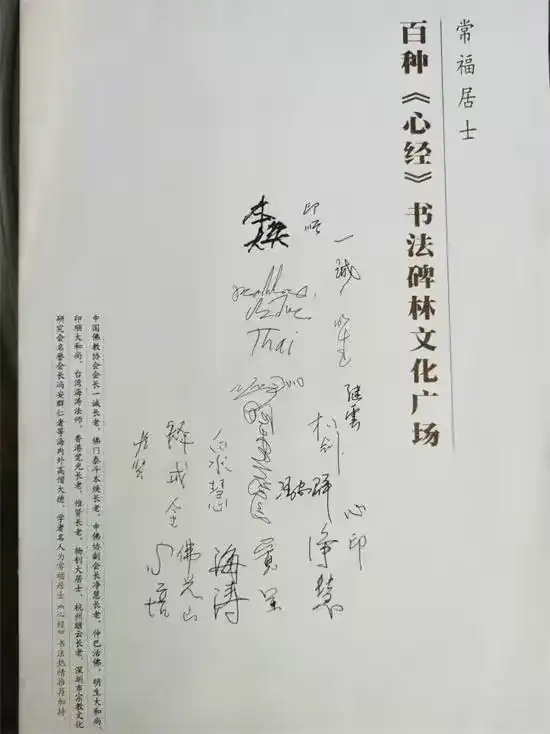 常福居士
百种《心经》书法碑林文化广场
印顺
一诚
本焕
Thai
继云
心印
净慧
海涛
佛光山
心培
释戒全
中国佛教协会会长一诚长老、佛门泰斗本焕长老、中佛协副会长净慧长老、仲巴活佛、明生大和尚、
印顺大和尚、台湾海涛法师、香港觉光长老、惟贤长老、杨钊大居士、杭州继云长老、深圳市宗教文化
研究会名誉会长冯安群仁者等海内外高僧大德、学者名人为常福居士《心经》书法热情推荐加持。